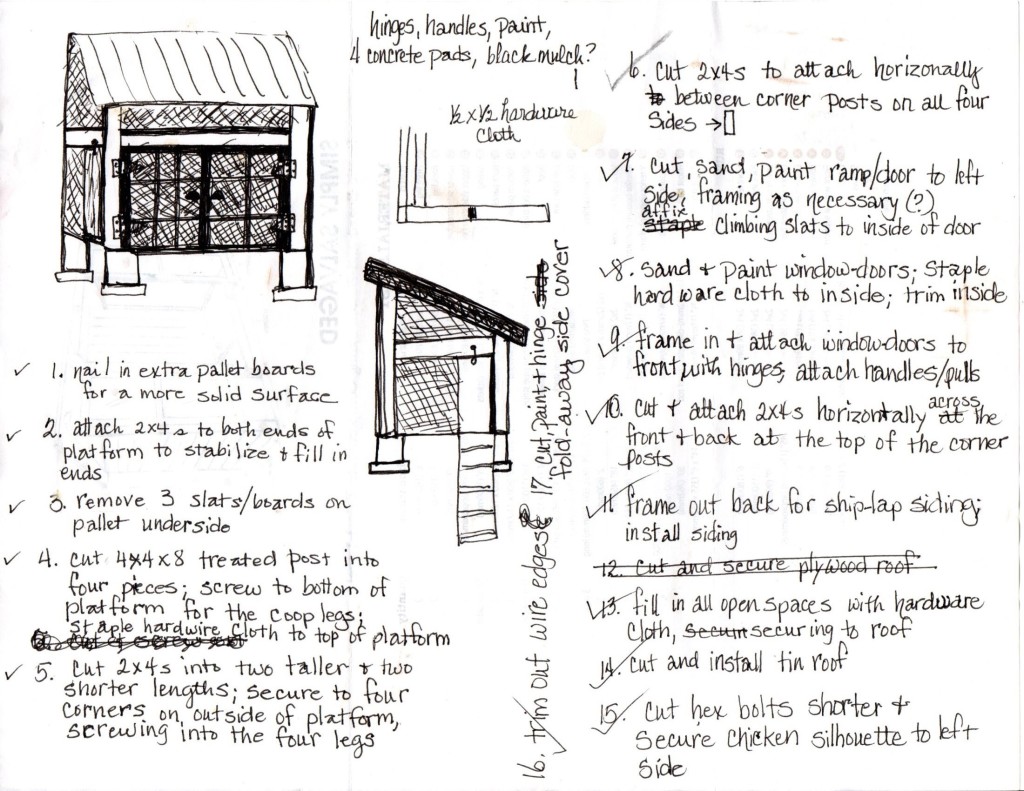 hinges, handles, paint,
4 concrete pads, black mulch?
½ x ½ hardware
cloth
✓ 1. nail in extra pallet boards
for a more solid surface
✓ 2. attach 2x4s to both ends of
platform to stabilize + fill in
ends
✓ 3. remove 3 slats/boards on
pallet underside
✓ 4. cut 4x4x8 treated post into
four pieces; screw to bottom of
platform for the coop legs;
staple hardwire cloth to top of platform
✓ 5. cut 2x4s into two taller + two
shorter lengths; secure to four
corners on outside of platform,
screwing into the four legs
✓ 6. cut 2x4s to attach horizonally
to between corner posts on all four
sides →
✓ 7. cut, sand, paint ramp/door to left
side, framing as necessary (?)
affix
staple climbing slats to inside of door
✓ 8. sand + paint window-doors; staple
hardware cloth to inside; trim inside
✓ 9. frame in + attach window-doors to
front with hinges; attach handles/pulls
✓ 10. cut + attach 2x4s horizontally across at the
front + back at the top of the corner
posts
✓ 11. frame out back for ship-lap siding;
install siding
12. cut and secure plywood roof
✓ 13. fill in all open spaces with hardware
cloth, secum securing to roof
✓ 14. cut and install tin roof
✓ 15. cut hex bolts shorter +
secure chicken silhouette to left
side
✓ 16. trim out wire edges
17. cut, paint, + hinge side
fold-away side cover